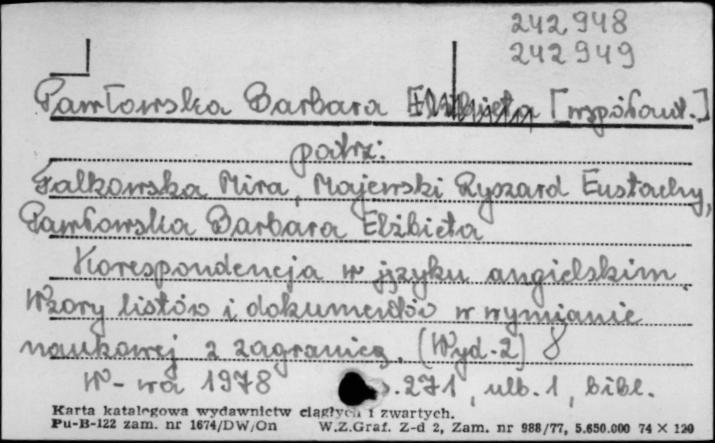 242 948
242 949
Pawłowska Barbara Elżbieta [współaut.]
patrz:
Falkowska Mira, Majewski Ryszard Eustachy,
Pawłowska Barbara Elżbieta
Korespondencja w języku angielskim.
Wzory listów i dokumentów w wymianie
naukowej z zagranicą. (Wyd. 2) 8
W-wa 1978 s. 271, ulb. 1, bibl.
Karta katalogowa wydawnictw ciągłych i zwartych.
Pu-B-122 zam. nr 1674/DW/On W.Z.Graf. Z-d 2, Zam. nr 988/77, 5.650.000 74 × 120